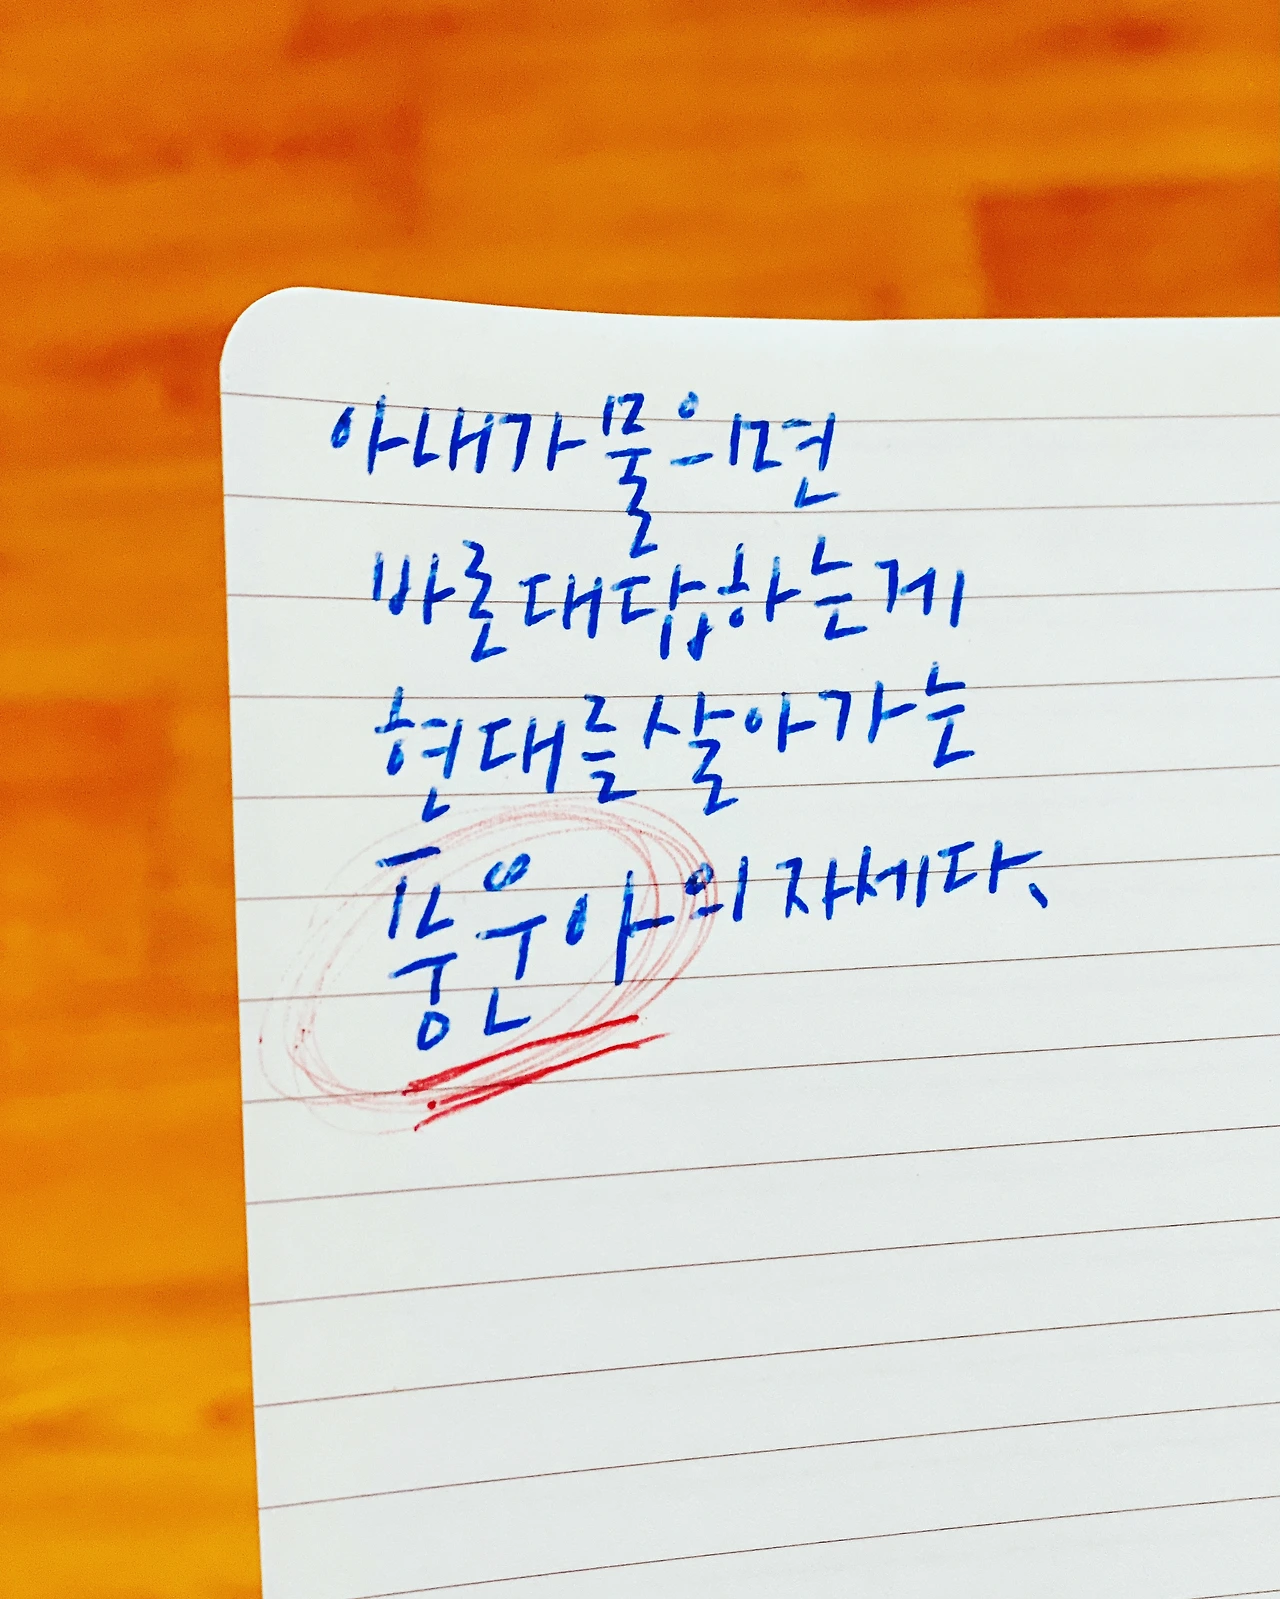 아내가 물으면
바로 대답하는 게
현대를 살아가는
풍운아의 자세다.